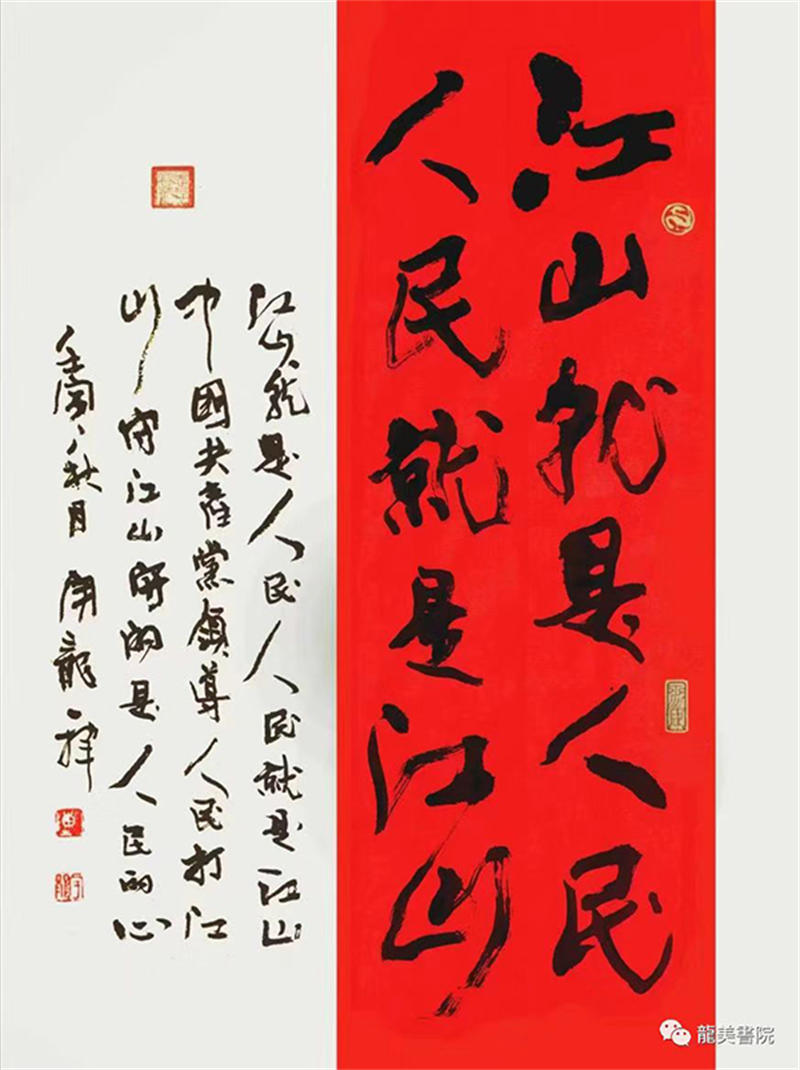 江山就是人民
人民就是江山
江山就是人民人民就是江山
中國共產黨領導人民打江
山守江山的是人民的心
壬寅秋月龍
龍美書院